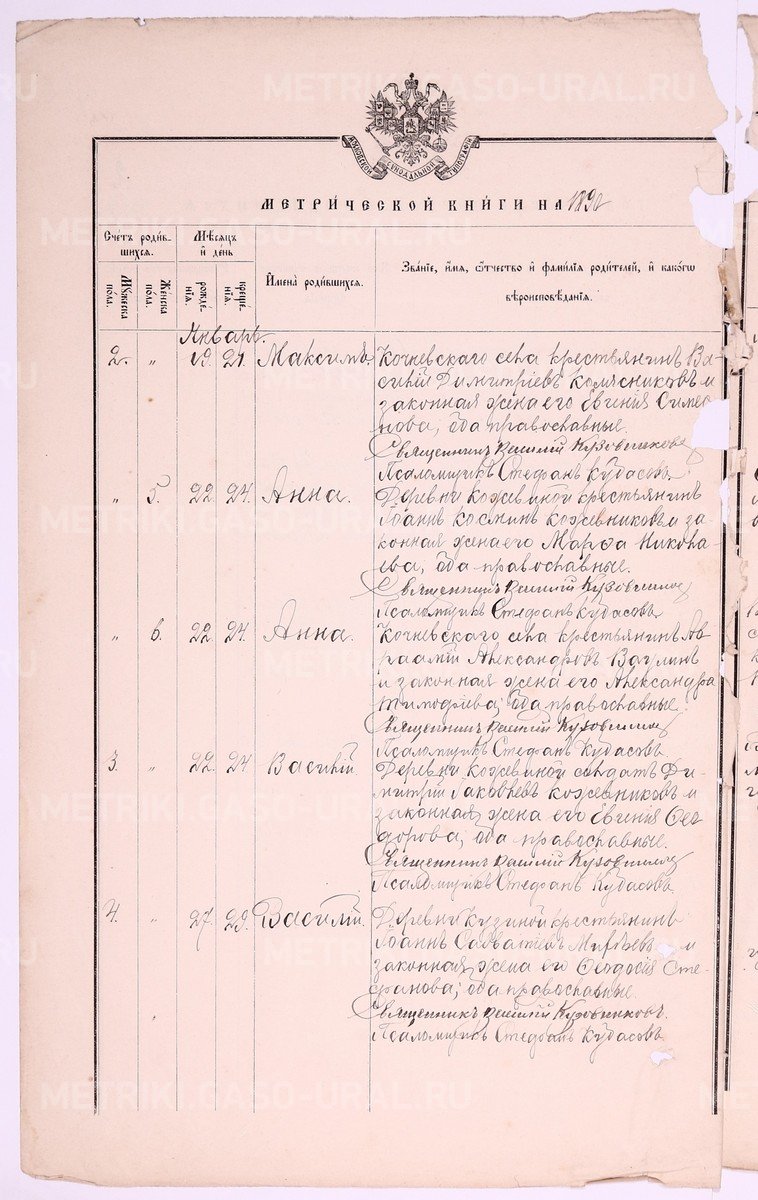 МОСКОВСКОЙ СѴНОДАЛЬНОЙ ТИПОГРАФІИ
МЕТРИ́ЧЕСКОЙ КНИ́ГИ НА 1892
Счетъ роди́вшихся.
Мѣсяцъ и҆ день
И҆мена̀ роди́вшихся.
Зва́нїе, и҆́мѧ, ѻ҆́тчество и҆ фами́лїѧ роди́телей, и҆ какогѡ вѣроисповѣ́данїѧ.
Мꙋжеска по́ла.
Же́нска по́ла.
рожде́нїѧ.
креще́нїѧ.
Январь.
2. " 19. 21. Максимъ. Кочневскаго села крестьянинъ Ва-
силій Димитріевъ Колясниковъ и
законная жена его Евгенія Симео
нова, оба православные.
Священникъ Василій Кузовников
Псаломщикъ Стефанъ Кудасовъ
" 5. 22. 24. Анна. Деревни Кожевиной крестьянинъ
Іоаннъ Косминъ Кожевниковъ и за-
конная жена его Марѳа Никола-
ева, оба православные.
Священникъ Василій Кузовников
Псаломщикъ Стефанъ Кудасовъ
" 6. 22. 24. Анна. Кочневскаго села крестьянинъ Ав-
раамій Александровъ Вагулинъ
и законная жена его Александра
Тимофіева, оба православные.
Священникъ Василій Кузовников
Псаломщикъ Стефанъ Кудасовъ
3. " 22. 24 Василій Деревни Кожевиной солдатъ Ди-
митрій Іаковлевъ Кожевниковъ и
законная жена его Евгенія Ѳео
дорова, оба православные.
Священникъ Василій Кузовников
Псаломщикъ Стефанъ Кудасовъ
4. " 27. 29. Василій. Деревни Кузиной крестьянинъ
Іоаннъ Савватіевъ и
законная жена его Ѳеодосія Сте-
фанова; оба православные.
Священникъ Василій Кузовниковъ.
Псаломщикъ Стефанъ Кудасовъ
METRIKI.GASO-URAL.RU